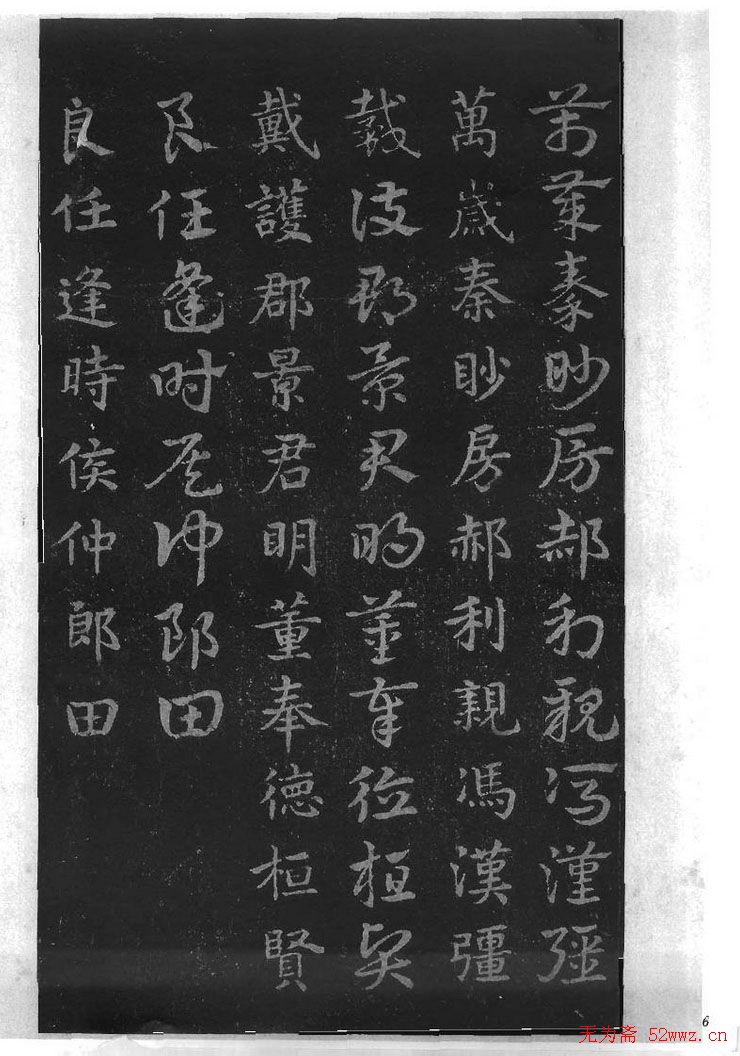 萬歲秦眇房郝利親馮漢彊
萬歲秦眇房郝利親馮漢彊
戴護郡景君明董奉德桓賢
戴護郡景君明董奉德桓賢
良任逢時侯仲郎田
良任逢時侯仲郎田
6
无为斋 52wwz.cn